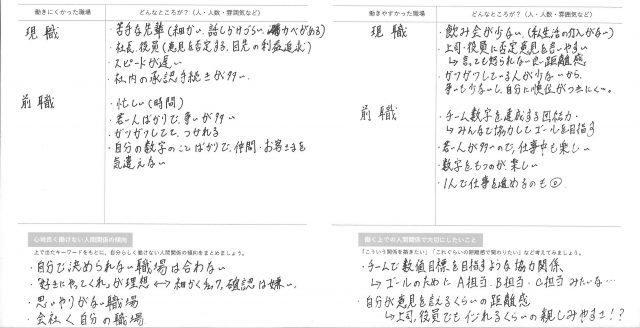 働きにくかった職場
どんなところが？（人・人数・雰囲気など）
現職
・苦手な先輩（細かい、話しかけづらい、
・社長、役員（意見を否定する、目先の利益追求）
・スピードが遅い
・社内の承認手続きが多い。
前職
・忙しい（時間）
・若い人ばかりで、争いが多い
・ガツガツしてて、つかれる
・自分の数字のことばかりで、仲間・お客さまを
気遣えない
心地良く働けない人間関係の傾向
上で出たキーワードをもとに、自分らしく働けない人間関係の傾向をまとめましょう。
・自分で決められない職場は合わない
・"好きにやってくれ"が理想 ↔ 細かく私ク、確認は嫌い。
・思いやりがない職場
・会社 く 自分の職場
働きやすかった職場
どんなところが？（人・人数・雰囲気など）
現職
・飲み会が少ない、（私生活の介入がない）
・上司・役員に否定意見を言いやすい
↳言っても怒られない距離感
・ガツガツしている人が少ないから、
争いも少ないし、自分に順位がつきにくい。
前職
・チーム数字を達成する団結力
↳みんなで協力してゴールを目指す
・若い人が多いので、仕事中も楽しい
・数字をもつのが楽しい
・1人で仕事を進めるのも◎
働く上での人間関係で大切にしたいこと
「こういう関係を築きたい」「これぐらいの距離感で関わりたい」など考えてみましょう。
・チームで数値目標を目指すような協力関係
↳ゴールのために A担当、B担当、C担当みたいな…
・自分が意見を言えるくらいの距離感
↳上司、役員でもイジれるくらいの親しみやすさ!?